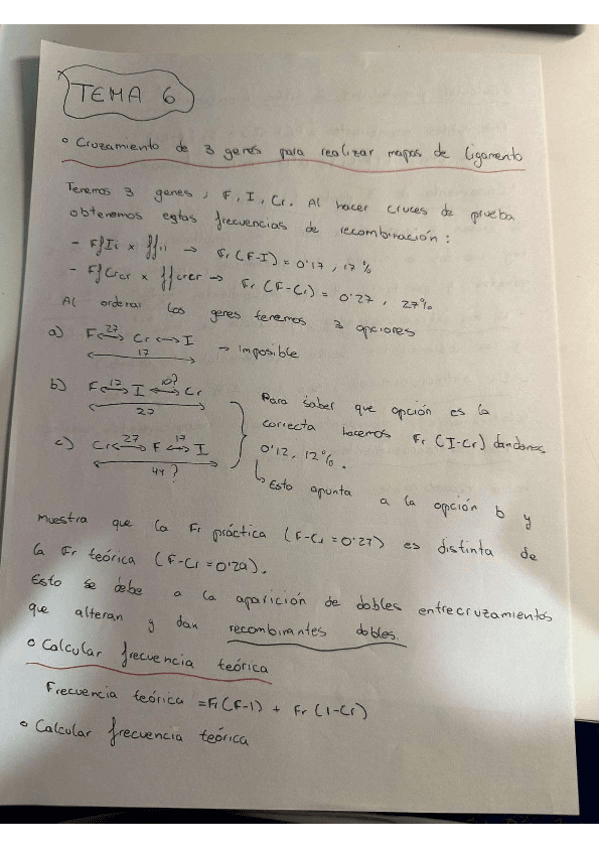 TEMA 6
° Cruzamiento de 3 genes para realizar mapas de ligamento
Tenemos 3 genes, F, I, Cr. Al hacer cruces de prueba
obtenemos estas frecuencias de recombinación:
- FfIi × ffii → Fr (F-I) = 0'17, 17%
- FfCrcr × ffcrcr → Fr (F-Cr) = 0'27, 27%
Al ordenar los genes tenemos 3 opciones
a) F ←27→ Cr ←→ I → Imposible
17
b) F ←17→ I ←10?→ Cr
27
c) Cr ←27→ F ←17→ I
44?
Para saber que opción es la
correcta hacemos Fr (I-Cr) dandonos
0'12, 12%.
↳ Esto apunta a la opción b y
muestra que la Fr práctica (F-Cr = 0'27) es distinta de
la Fr teórica (F-Cr = 0'29).
Esto se debe a la aparición de dobles entrecruzamientos
que alteran y dan recombinantes dobles.
° Calcular frecuencia teórica
Frecuencia teórica = Fr (F-I) + Fr (I-Cr)
° Calcular frecuencia teórica